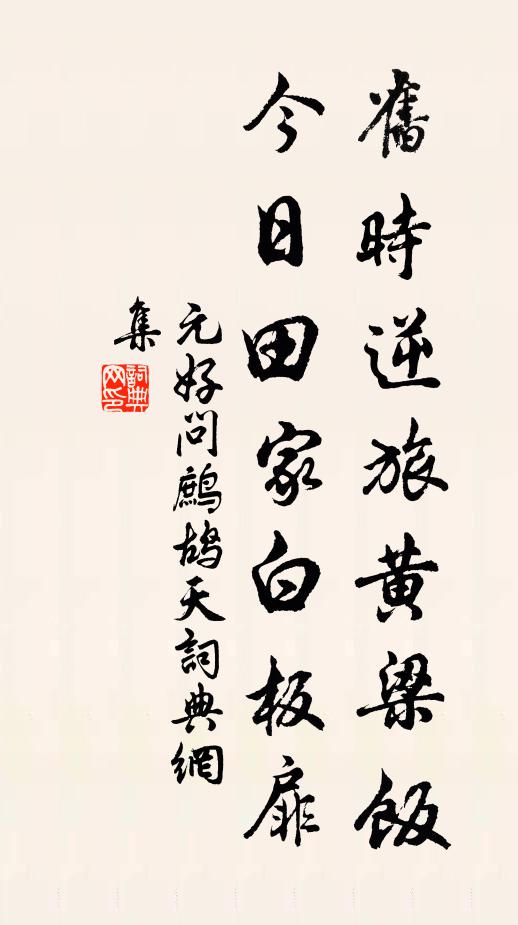 舊時逆旅黃粱飯
今日田家白板扉
元好問鷓鴣天詞典網
集
詞典网印